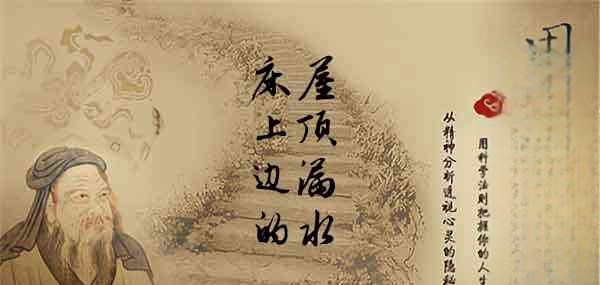 用科学法则把握你的人生
从精神分析透视心灵的隐秘
屋顶漏水
床上边的